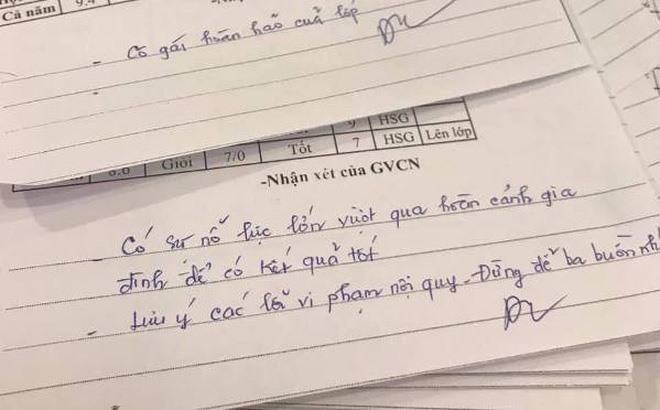 Cả năm 9.4
- Cô gái hoàn hảo của lớp
-
9 HSG
8.6 Giỏi 7/0 Tốt 7 HSG Lên lớp
-Nhận xét của GVCN
- Có sự nỗ lực lớn vượt qua hoàn cảnh gia
đình để có kết quả tốt
- Lưu ý các lỗi vi phạm nội quy. Đừng để ba buồn